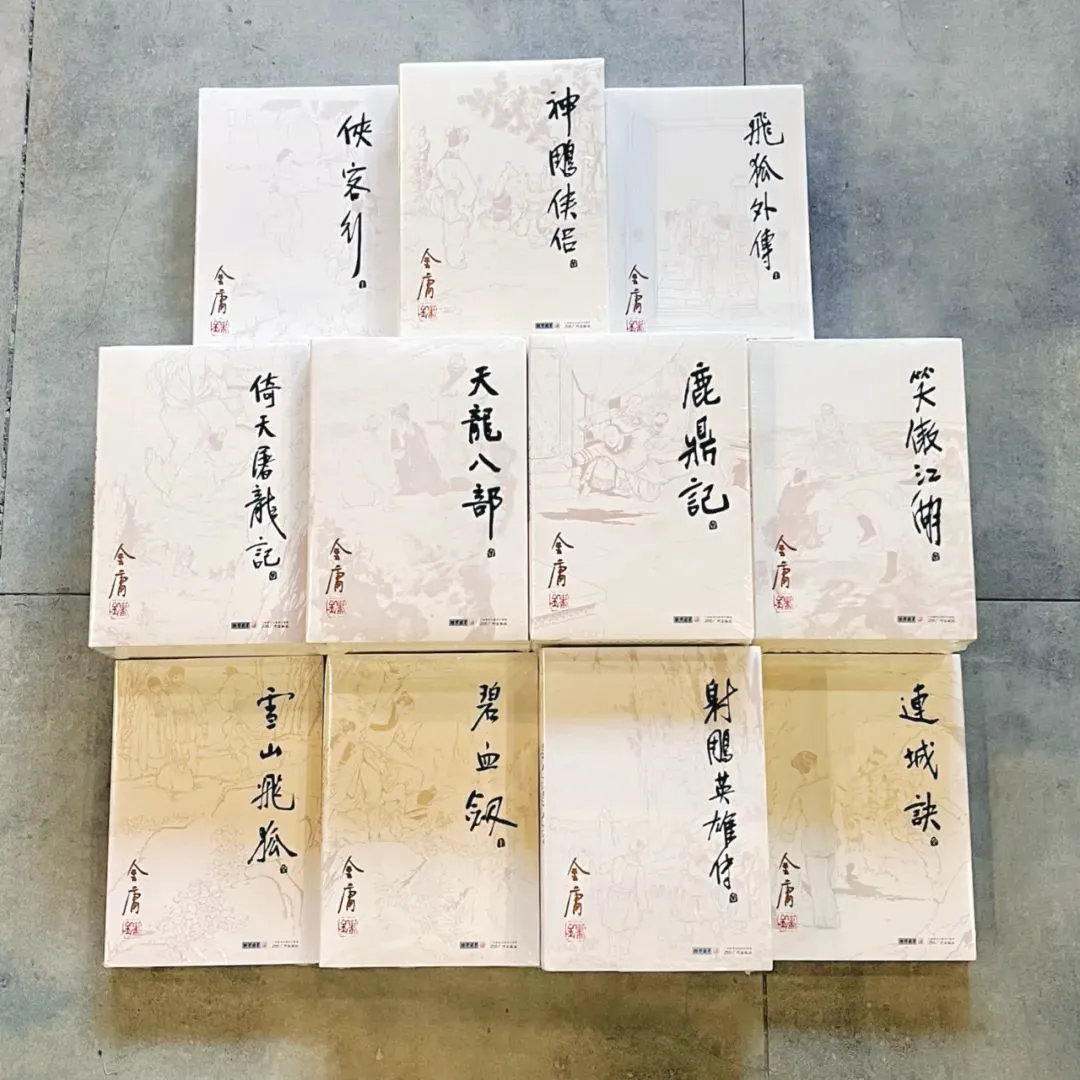 俠客行
金庸
神鵰侠侣
金庸
飛狐外傳
金庸
倚天屠龍記
金庸
天龍八部
金庸
鹿鼎記
金庸
笑傲江湖
金庸
雪山飛狐
金庸
碧血劔
金庸
射鵰英雄传
金庸
連城訣
金庸